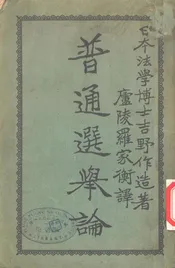 日本法學博士吉野作造著
廬陵羅家衡譯
普通選舉論